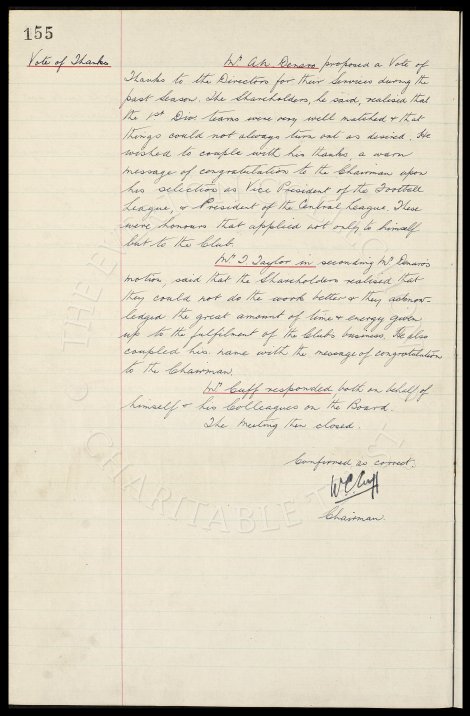 155
Vote of Thanks
Mr A.N. Denaro proposed a Vote of
Thanks to the Directors for their Services during the
past Season. The Shareholders, he said, realised that
the 1st Divn teams were very well matched & that
things could not always turn out as desired. He
wished to couple with his thanks a warm
message of congratulation to the Chairman upon
his selection as Vice President of the Football
League, & President of the Central League. These
were honours that applied not only to himself
but to the Club.
Mr T. Taylor in seconding Mr Denaro's
motion, said that the Shareholders realised that
they could not do the work better & they acknow-
ledged the great amount of time & energy given
up to the fulfilment of the Club's business. He also
coupled his name with the message of congratulation
to the Chairman.
Mr Cuff responded, both on behalf of
himself & his Colleagues on the Board.
The Meeting then closed.
Confirmed as correct.
W.C. Cuff
Chairman.
CHARITABLE